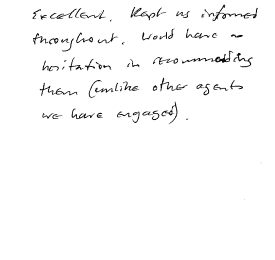 Excellent. Kept us informed
throughout. Would have no
hesitation in recommending
them (unlike other agents
we have engaged).